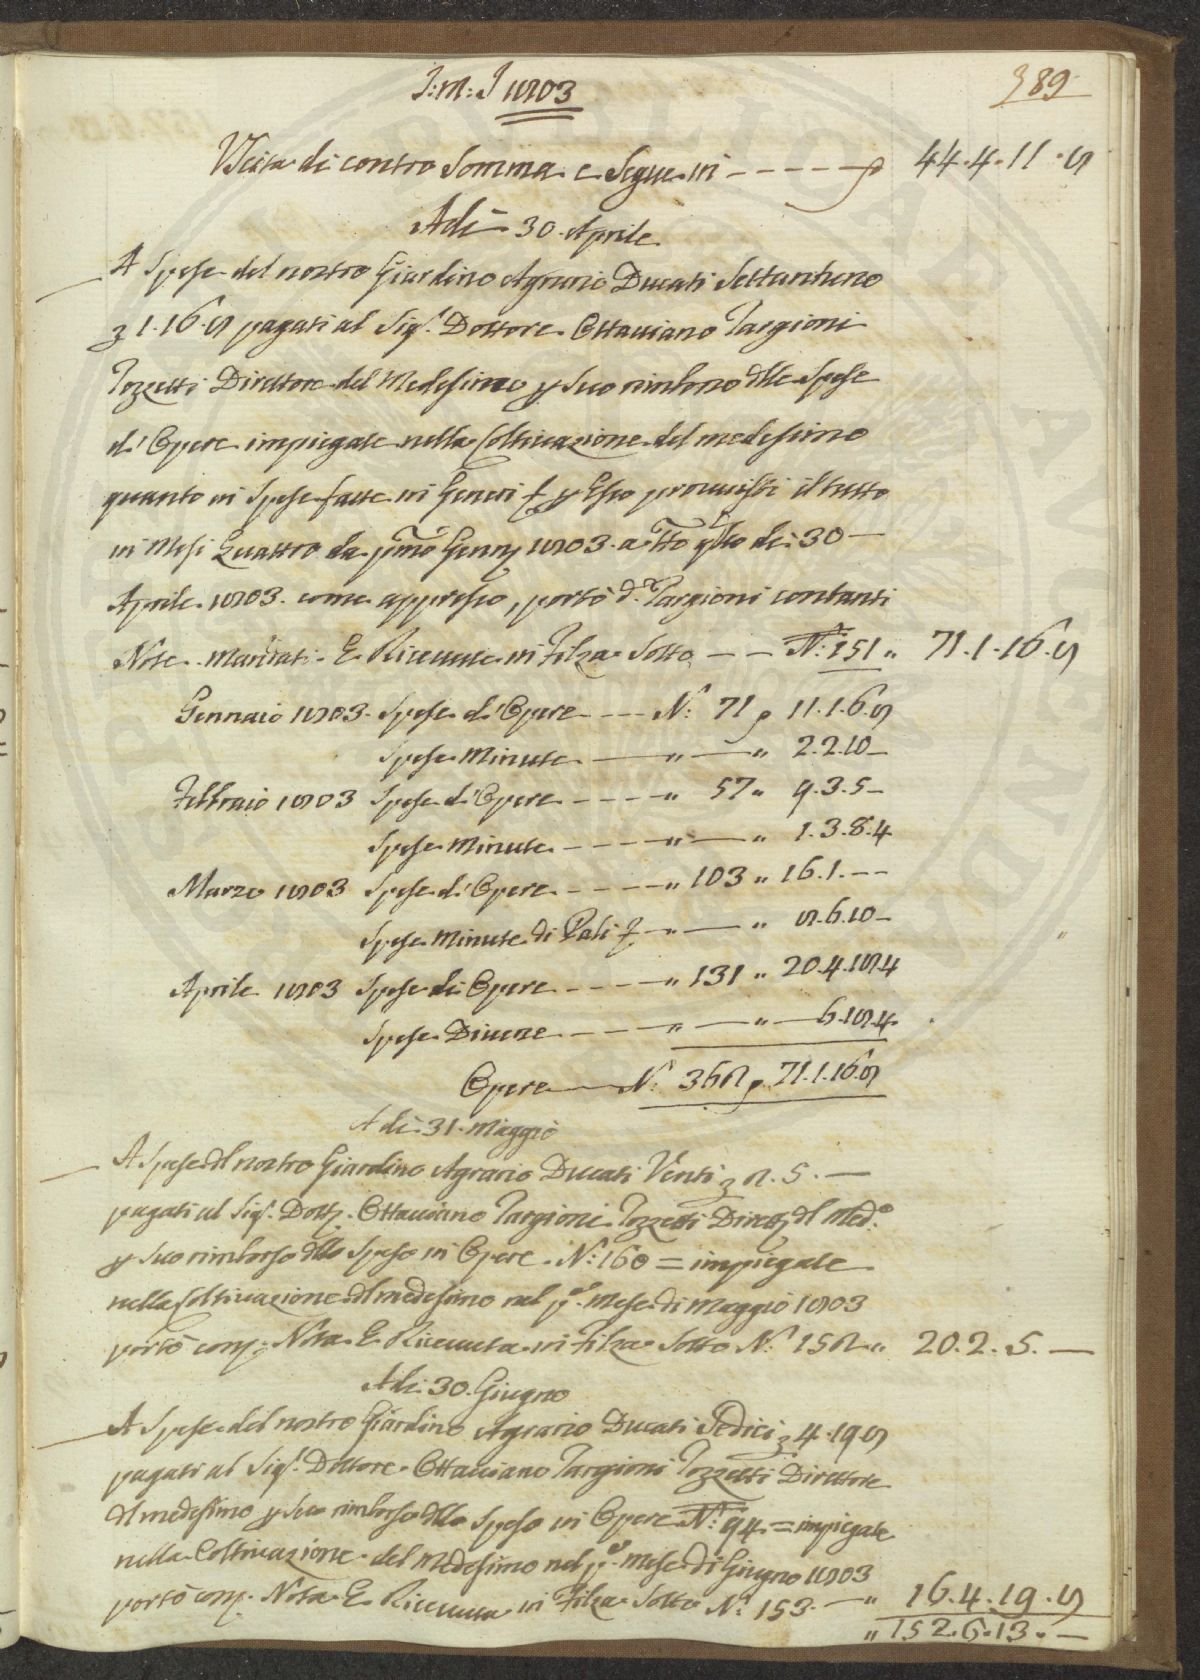 J: M: J 1803
389
Uscita di contro Somma e Segue in - - - - - 44.4.11.8
Adì 30. Aprile
A Spese del nostro Giardino Agrario Ducati Settantuno
1.16.8 pagati al Sig.r Dottore Ottaviano Targioni
Tozzetti Direttore del Medesimo p Suo rimborso dlle Spese
d'Opere impiegate nella Coltivazione del medesimo
quanto in Spese fatte in Generi p Esso provvisti il tutto
in Mesi Quattro da pmo Genn 1803. a tto di 30 —
Aprile 1803. come appresso, portò d. Targioni contanti
Note. Mandati. E Ricevute in Filza Sotto — — N: 151 " 71.1.16.8
Gennaio 1803. Spese d'Opere - - - N: 71 11.1.6.8
Spese Minute — " — " 2.2.10 –
Febbraio 1803 Spese d'Opere - - - - " 57 " 9.3.5 –
Spese Minute - - - - " — " 1.3.8.4
Marzo 1803 Spese d'Opere - - - - " 103 " 16.1. - -
Spese Minute di Pali — " — " 8.6.10 –
Aprile 1803 Spese di Opere - - - - " 131 " 20.4.18.4
Spese Diverse - - - - " — " — 6.18.4
Opere — N: 362 71.1.16.8
Adì 31. Maggio
A Spese dl nostro Giardino Agrario Ducati Venti 2.5. —
pagati al Sig.r Dott. Ottaviano Targioni Tozzetti Dirett. dl Med.o
p Suo rimborso dlle Spese in Opere. N: 160 = impiegate
nella Coltivazione dl medesimo nel p. Mese di Maggio 1803
portò con. Nota E Ricevuta in Filza Sotto N. 152 " 20.2.5. —
Adì 30. Giugno
A Spese del nostro Giardino Agrario Ducati Sedici 4.19.8
pagati al Sig.r Dottore Ottaviano Targioni Tozzetti Direttore
dl medesimo p Suo rimborso dlle Spese in Opere N: 94. = impiegate
nella Coltivazione del Medesimo nel p. Mese di Giugno 1803
portò con. Nota E Ricevuta in Filza Sotto N. 153. — " 16.4.19.8
" 152.6.13. —